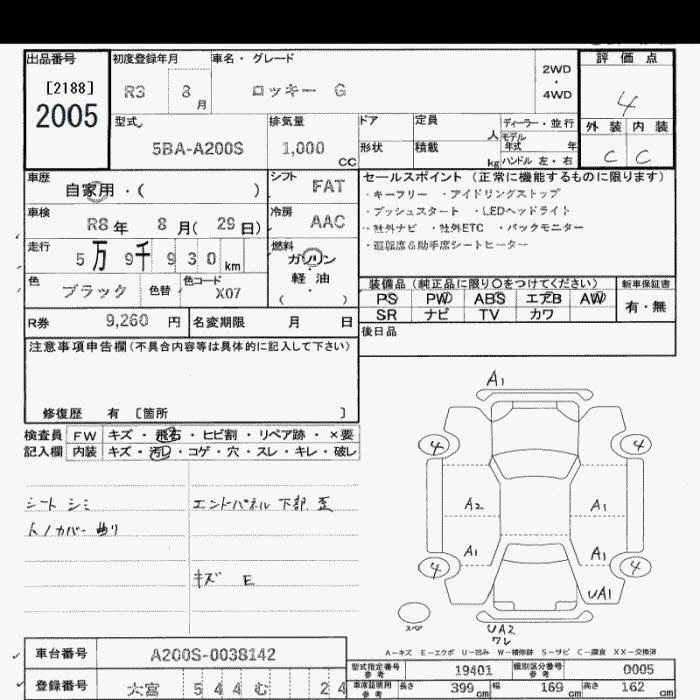 出品番号 初度登録年月 車名・グレード 評価点
[2188] R3 8月 ロッキー G 2WD・4WD 4
2005
型式 排気量 ドア 定員 人 ディーラー・並行 外装 内装
5BA-A200S 1,000 CC 形状 積載 kg モデル年式 年 C C
ハンドル 左・右
車歴 シフト セールスポイント (正常に機能するものに限ります)
自家用・( ) FAT ・キーフリー ・アイドリングストップ
車検 冷房 ・プッシュスタート ・LEDヘッドライト
R8年 8月( 29日) AAC ・社外ナビ ・社外ETC ・バックモニター
走行 燃料 ・運転席&助手席シートヒーター
5万 9千 930km ガソリン
軽油
( )
色 色替 色コード 装備品 (純正品に限り○をつけてください) 新車保証書
ブラック X07 PS PW ABS エアB AW 有・無
SR ナビ TV カワ
R券 9,260 円 名変期限 月 日 後日品
注意事項申告欄(不具合内容等は具体的に記入して下さい)
修復歴 有 〔箇所 〕
検査員 FW キズ・飛石・ヒビ割・リペア跡・×要
記入欄 内装 キズ・汚レ・コゲ・穴・スレ・キレ・破レ
シート シミ エンドパネル 下部 歪
トノカバー 曲り
キズ E
A1
4 4
A2 A1
A1 A1
4 4
UA1
スペア UA2
ワレ
A-キズ E-エクボ U-凹み W-補修跡 S-サビ C-腐食 XX-交換済
車台番号 A200S-0038142 型式指定番号 参考 19401 類別区分番号 参考 0005
登録番号 大宮 544 む 24 車庫証明用 参考 長さ 399cm 幅 169cm 高さ 162cm